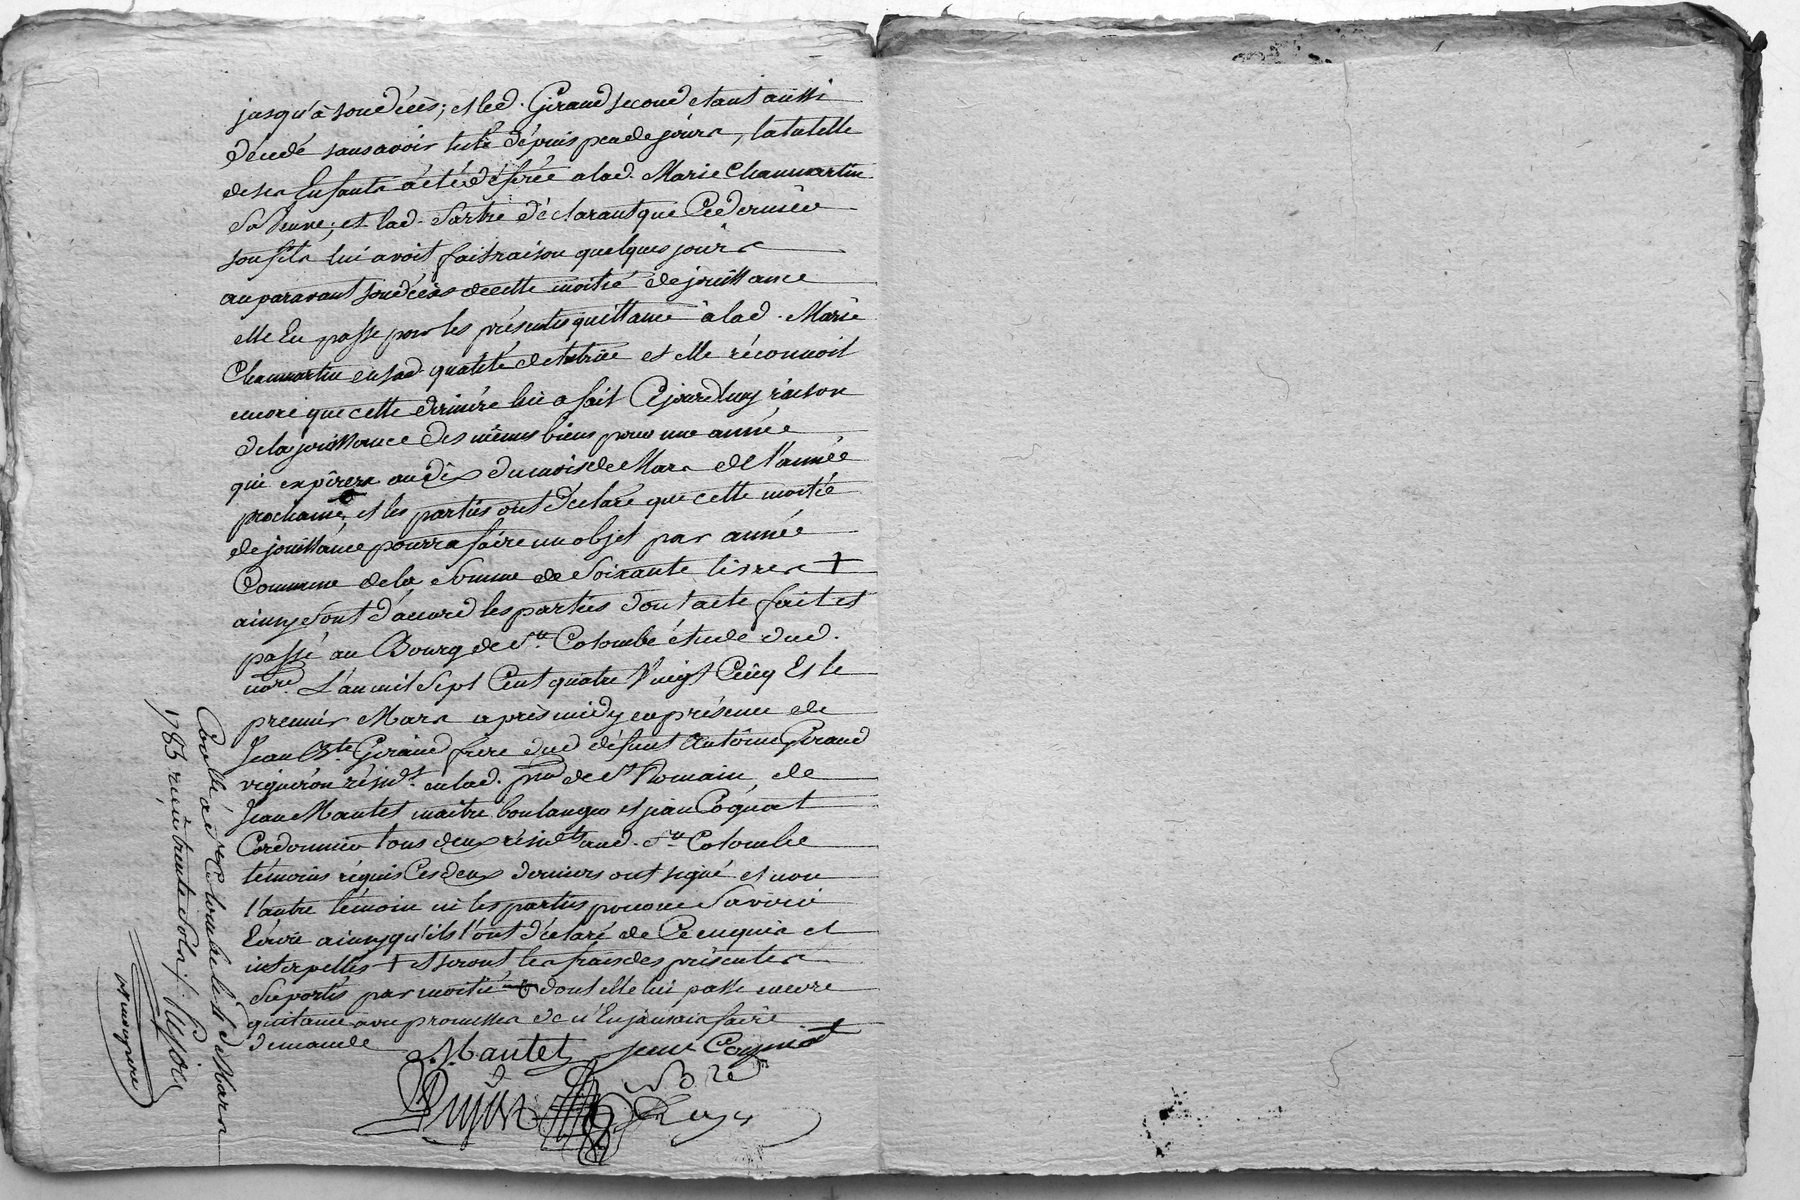 jusqu'à son décès; et led. Giraud second etant aussi
décedé sans avoir testé dépuis peu de jours, la tutelle
de ses Enfants a été déférée a lad. Marie Chanmartin
sa Veuve; et lad. Sartre déclarant que Ce dernier
son fils lui avoit fait raison quelques jours
auparavant son décès de cette moitié de jouissance
elle En passe pour les présentes quittance à lad. Marie
Chanmartin en sad. qualité de tutrice et elle réconnoit
encore que cette dernière lui a fait Cejourd'huy raison
de la jouissance des mêmes biens pour une année
qui expirera au dix du mois de Mars de l'année
prochaine, et les parties ont déclaré que cette moitié
de jouissance pourra faire un objet par année
Commune de la Somme de Soixante livres +
ainsy sont d'accord les parties dont acte fait et
passé au Bourg de Ste. Colombe étude dud.
nore. L'an mil Sept Cent quatre Vingt Cinq Et le
premier Mars après midy en présence de
Jean Bte. Giraud frère dud défunt Antoine Giraud
vigneron résidt. en lad. psse de St Romain, de
Jean Mantet maitre boulanger et jean Cognat
Cordonnier tous deux résidts aud. Ste Colombe
témoins réquis Ces deux derniers ont signé et non
l'autre témoin ni les parties pour ne Savoir
Ecrire ainsy qu'ils l'ont déclaré de Ce enquis et
interpellés + et seront les frais des présentes
Suportés par moitié dont elle lui passe encore
quitance avec promesse de n'En jamais faire
demande
Mantet jean Cognat
Dujon
nore
Controllé à Ste Colombe le 4 Mars
1785 reçu trente sols